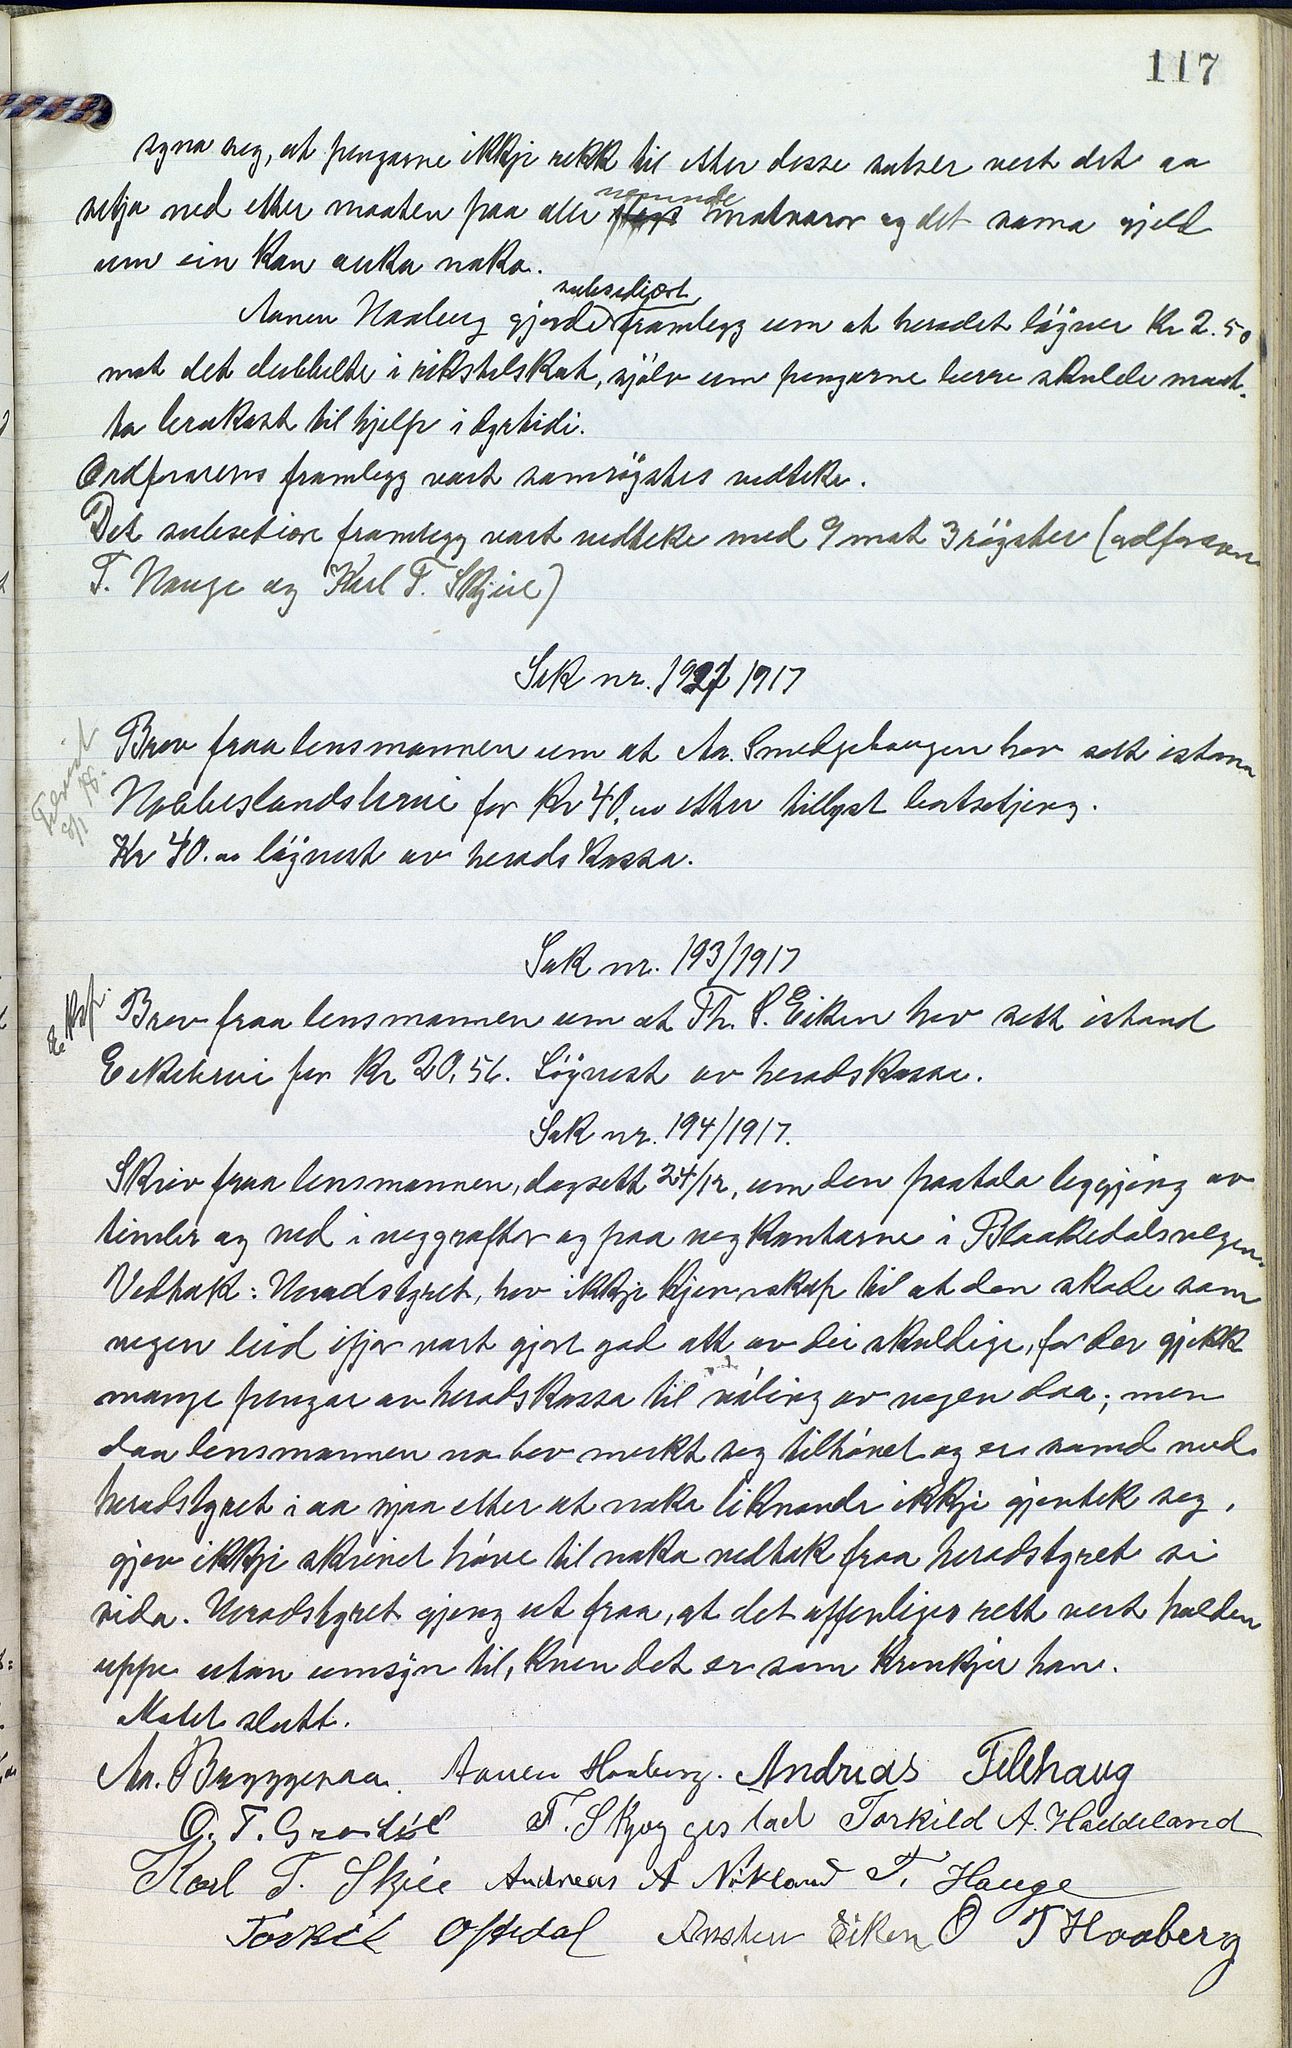 117
syna seg, at pengarne ikkje rekk til etter desse satser vert det aa
setja ned etter maaten paa alle nemnde matvaror og det sama gjeld
um ein kan auka noko.
Aanen Haaberg gjorde subsediært framlegg um at heradet løyver Kr 2.50
mot det dubbulte i rikstilskot, sjølv um pengarne berre skulde maat-
ta brukast til hjelp i dyrtidi.
Ordførarens framlegg vart samrøystes vedteke.
Det subsediære framlegg vart vedteke med 9 mot 3 røyster (ordføraren
T. Hauge og Karl T. Skjeie)
Sak nr. 192/1917
Brev fraa lensmannen um at Aa. Smedgehaugen hev sett istann
Hobbeslandsbrui for Kr 40,oo etter tillyst bortsetjing.
Kr 40.oo løyvest av heradskassa.
Sak nr. 193/1917
Brev fraa lensmannen um at Th. S. Eiken hev sett istand
Eikebrui for Kr 20,56. Løyvest av heradskassa.
Sak nr. 194/1917.
Skriv fraa lensmannen, dagsett 24/12, um den paatala leggjing av
timber og ved i veggrøfter og paa vegkantarne i Blaakedalsvegen.
Vedtak: Heradstyret hev ikkje kjennskap til at den skade som
vegen leid ifjor vart gjort god att av dei skuldige, for der gjekk
mange pengar av heradskassa til vøling av vegen daa; men
daa lensmannen no hev merkt seg tilhøvet og er samd med
heradstyret i aa sjaa etter at noko liknande ikkje gjentek seg,
gjev ikkje skrivet høve til noko vedtak fraa heradstyret si
sida. Heradstyret gjeng ut fraa, at det offenlige rett vert halden
uppe utan umsyn til, kven det er som krenkjer han.
Møtet slutt.
Aa. Bryggesaa. Aanen Haaberg. Andreas Felehaug
O. T. Grostøl T. Skjeggestad Torkild A. Haddeland
Karl T. Skjeie Andreas A Nøkland T. Hauge
Torkil Oftedal Ansten Eiken O T Haaberg